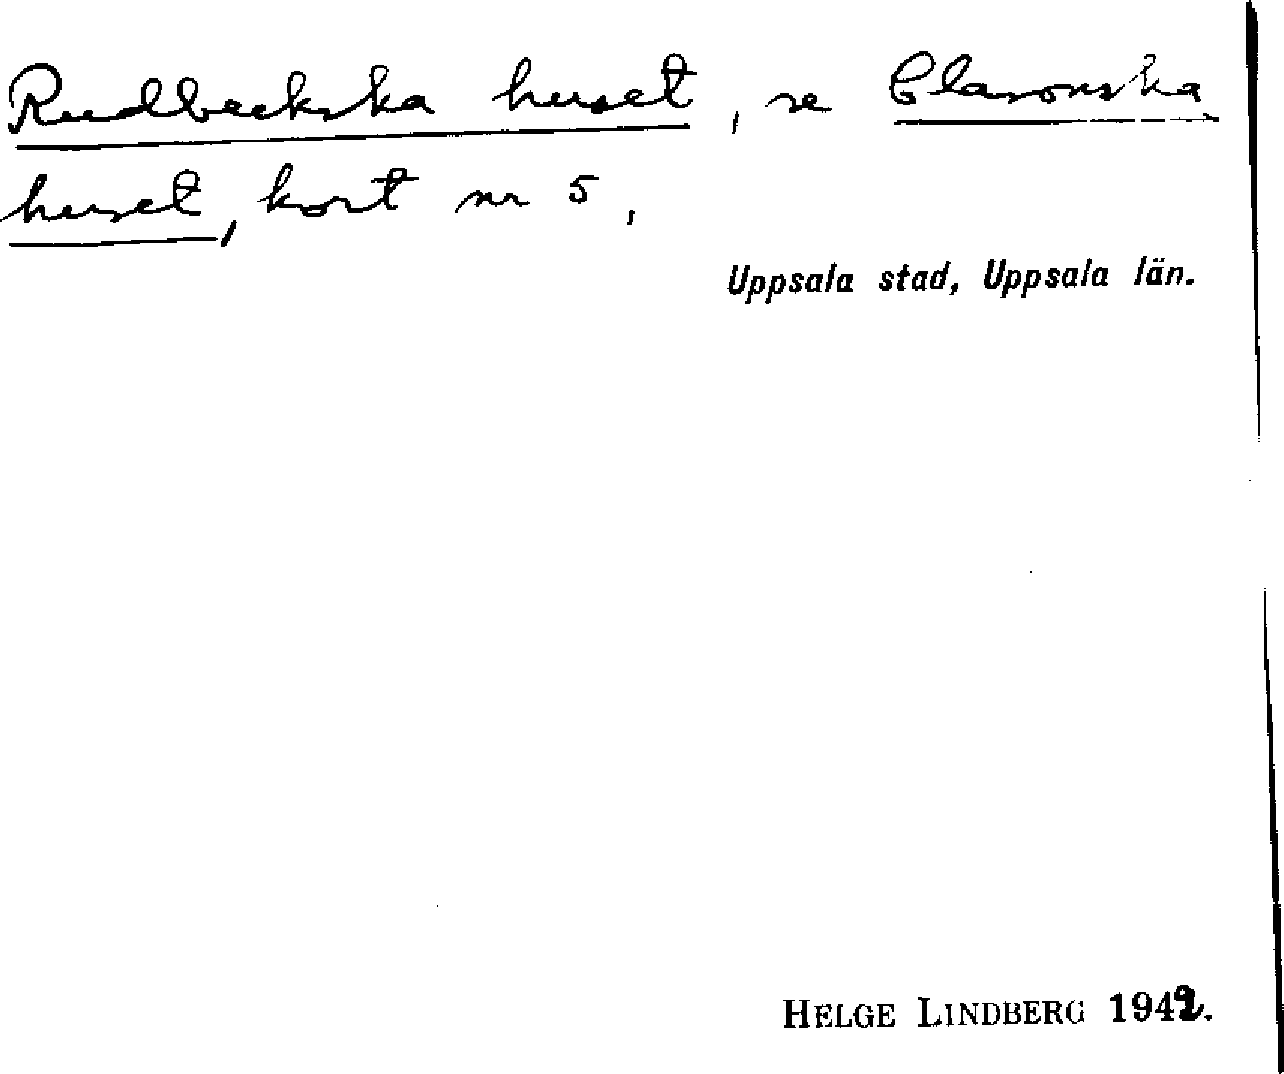 Rudbeckska huset, se Clasonska
huset, kort nr 5,
Uppsala stad, Uppsala län.
HELGE LINDBERG 1942.